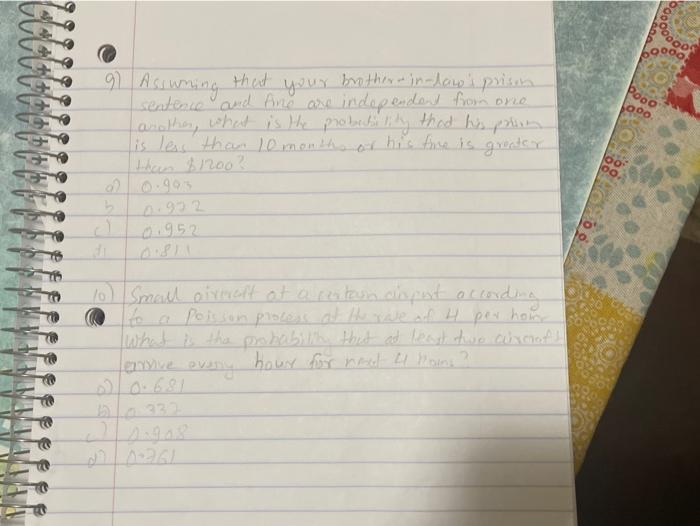 9) Assuming that your brother-in-law's prison
sentence and fine are independent from one
another, what is the probability that his prison
is less than 10 months or his fine is greater
than $1200?
a) 0.993
b 0.922
c) 0.952
d) 0.811
10) Small aircraft at a certain according
to a Poisson process at the rate of 4 per hour
What is the probability that at least two aircraft
arrive every hour for next 4 hours?
a) 0.681
b) 0.332
c) 0.908
d) 0.761